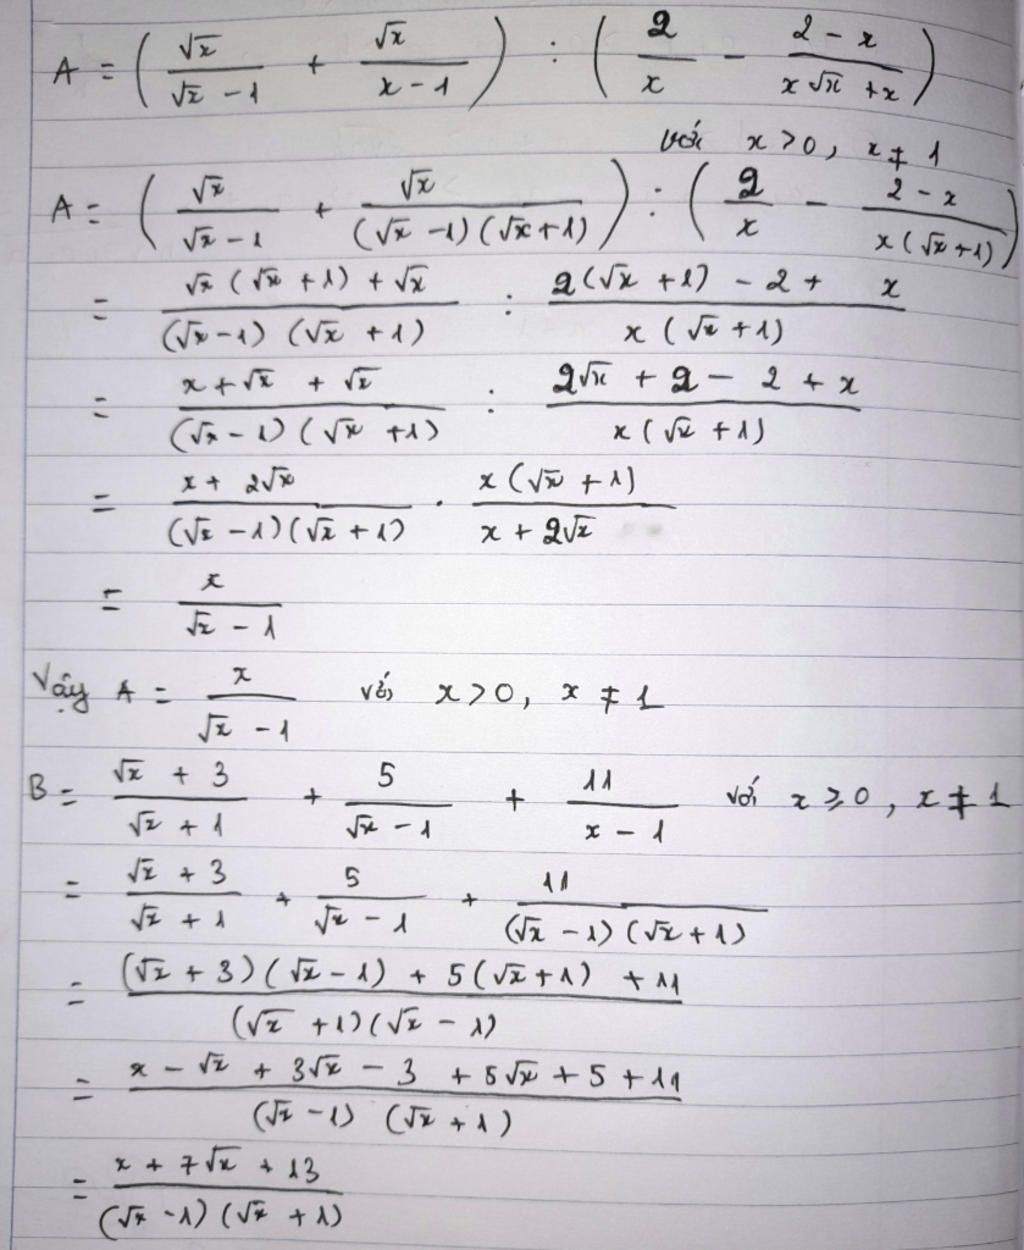 A = ( √x / (√x - 1) + √x / (x - 1) ) : ( 2 / x - (2 - x) / (x√x + x) )
với x > 0, x ≠ 1
A = ( √x / (√x - 1) + √x / ((√x - 1)(√x + 1)) ) : ( 2 / x - (2 - x) / (x(√x + 1)) )
= (√x(√x + 1) + √x) / ((√x - 1)(√x + 1)) : (2(√x + 1) - 2 + x) / (x(√x + 1))
= (x + √x + √x) / ((√x - 1)(√x + 1)) : (2√x + 2 - 2 + x) / (x(√x + 1))
= (x + 2√x) / ((√x - 1)(√x + 1)) . x(√x + 1) / (x + 2√x)
= x / (√x - 1)
Vậy A = x / (√x - 1) với x > 0, x ≠ 1
B = (√x + 3) / (√x + 1) + 5 / (√x - 1) + 11 / (x - 1) với x ≥ 0, x ≠ 1
= (√x + 3) / (√x + 1) + 5 / (√x - 1) + 11 / ((√x - 1)(√x + 1))
= ((√x + 3)(√x - 1) + 5(√x + 1) + 11) / ((√x + 1)(√x - 1))
= (x - √x + 3√x - 3 + 5√x + 5 + 11) / ((√x - 1)(√x + 1))
= (x + 7√x + 13) / ((√x - 1)(√x + 1))